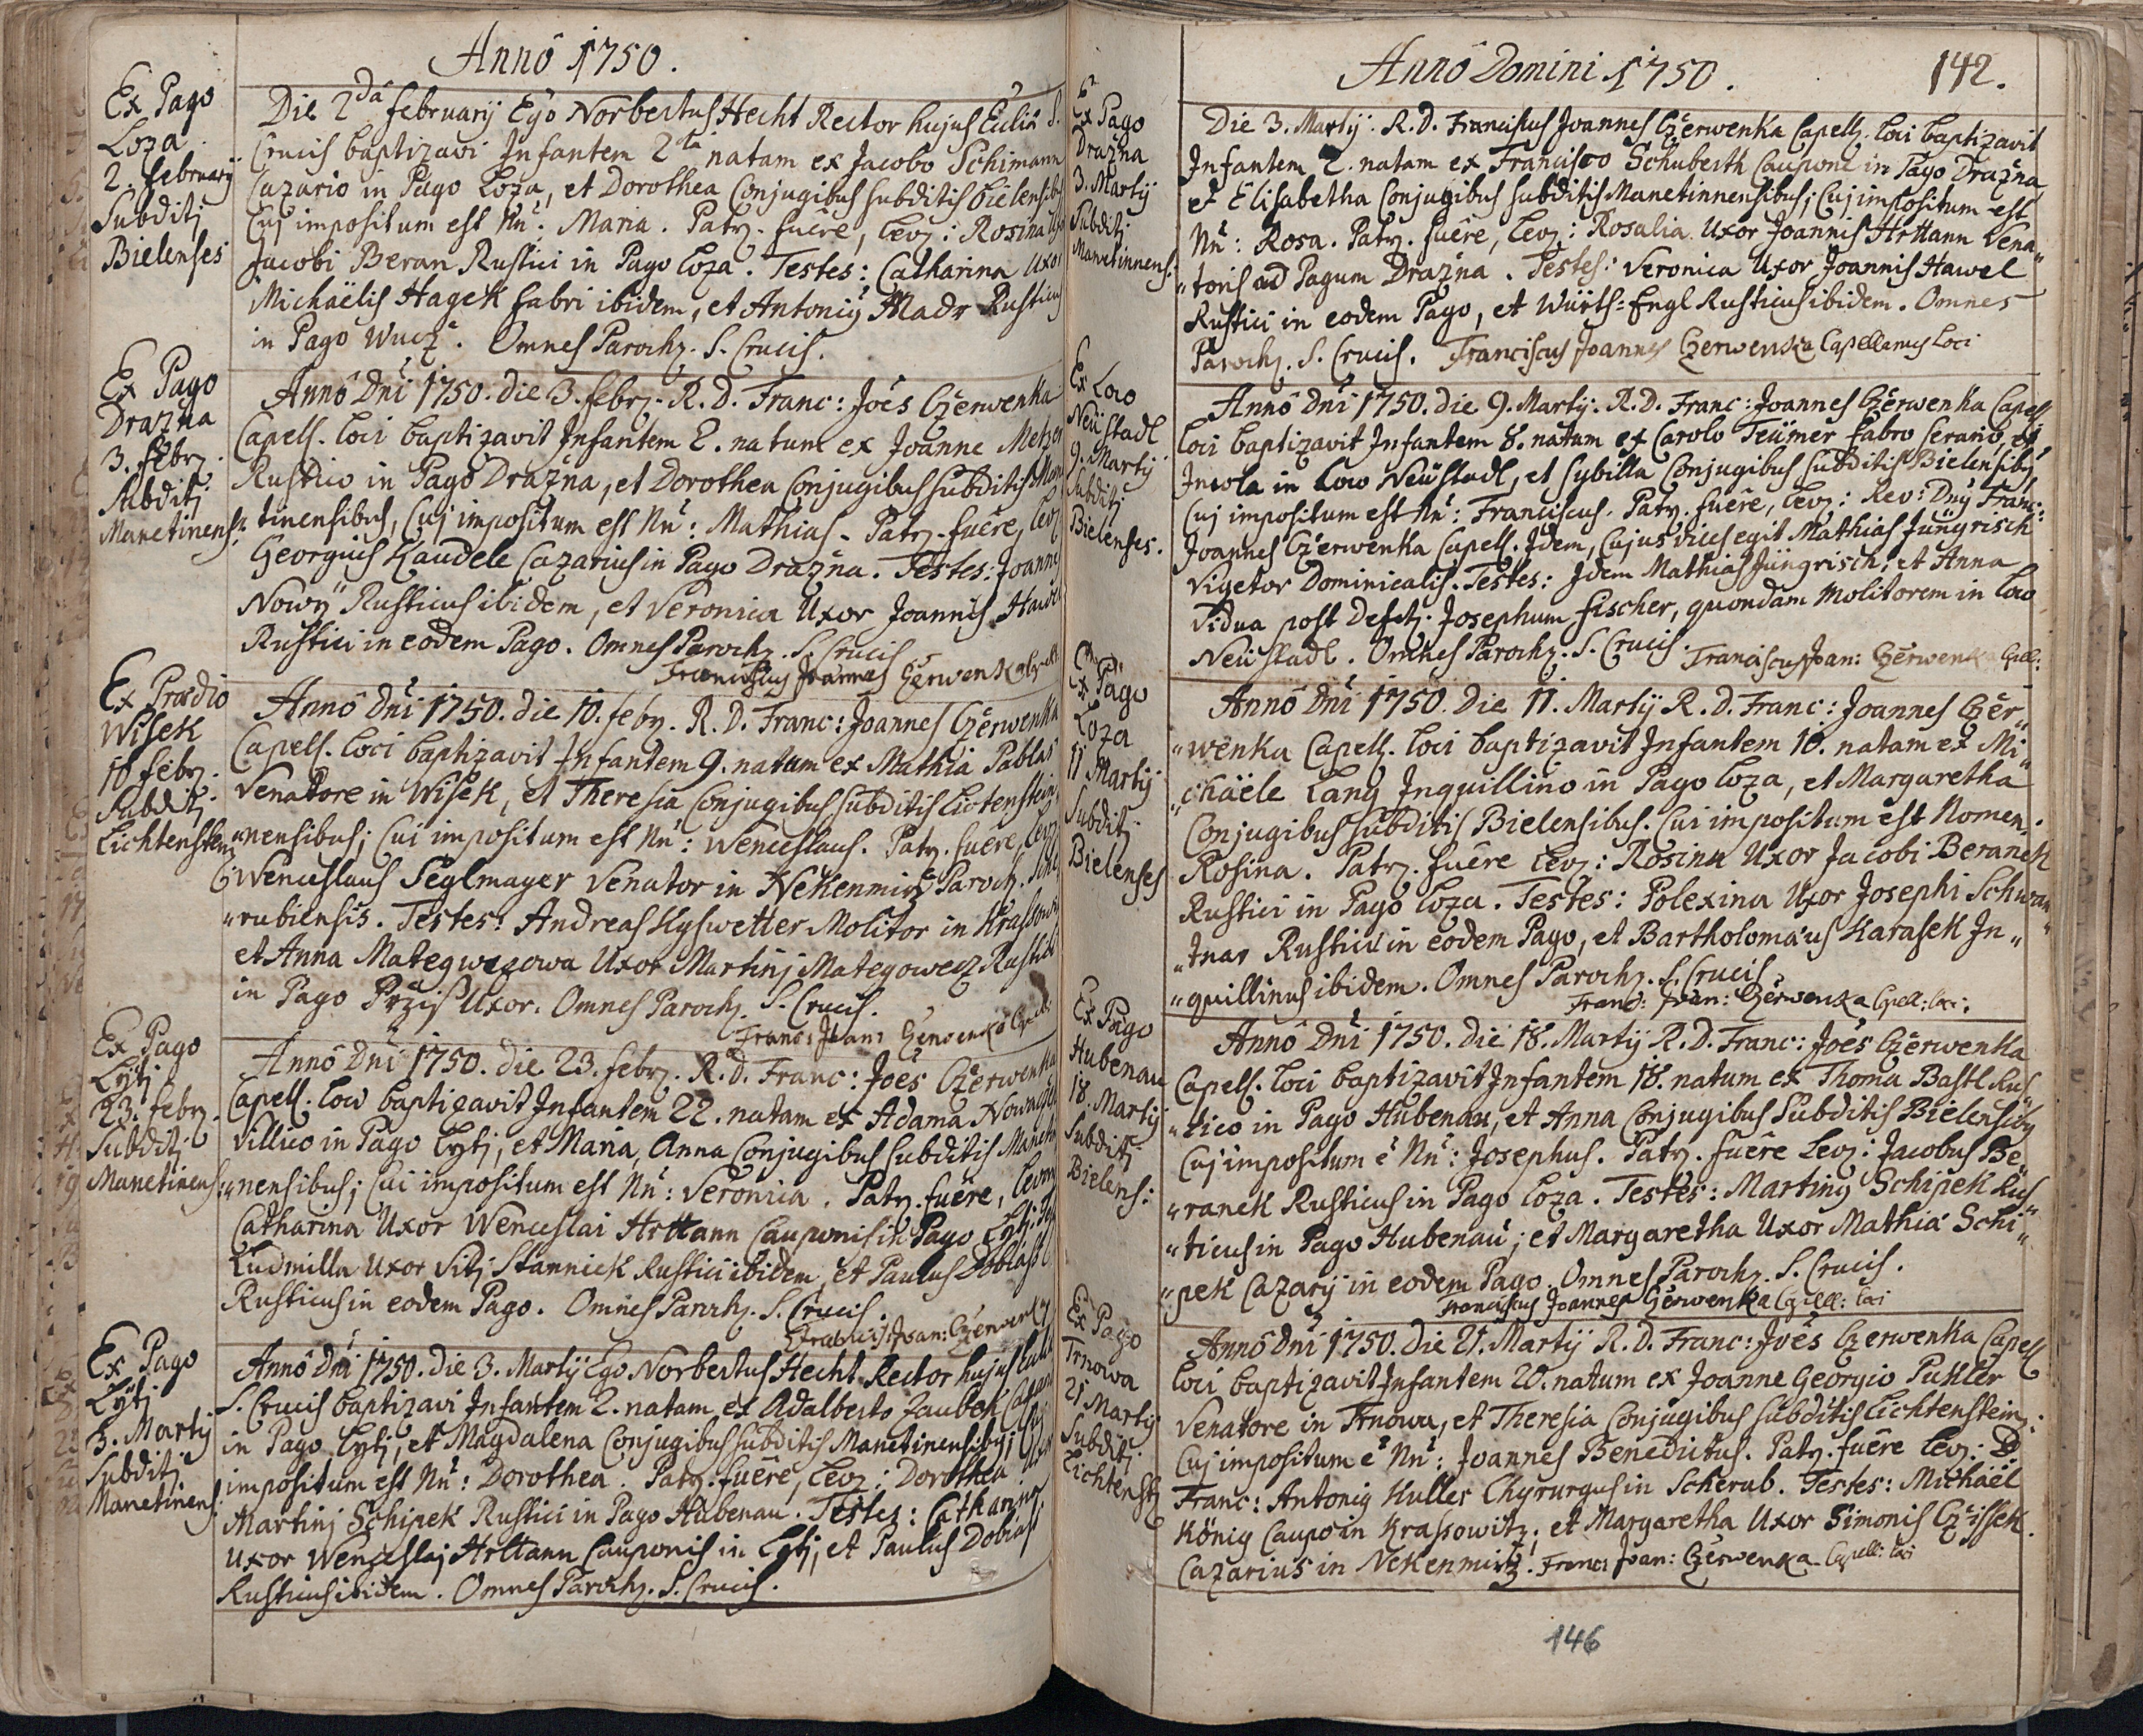 Annô 1750.
Ex Pago
Loza
2. february
Subditj
Bielenses
Die 2dâ february Ego Norbertus Hecht Rector hujus Ecliæ S.
Crucis baptizavi Infantem 2da natam ex Jacobo Schimann
Cazario in Pago Loza, et Dorothea Conjugibus subditis Bielensibus
Cuj impositum est Nñ: Maria. Patr. fuêre, lev: Rosina Uxor
Jacobi Beran Rustici in Pago Loza. Testes: Catharina Uxor
Michaëlis Hagek fabri ibidem, et Antoniỹ Madr Rusticus
in Pago Wucz. Omnes Paroch. S. Crucis.
Ex Pago
Drazna
3. febr.
Subditj
Manetinens:
Annô Dñi 1750. die 3. febr. R. D. Franc: Joês Czerwenka
Capell. loci baptizavit Infantem 2. natum ex Joanne Metzer
Rustico in Pago Drazna, et Dorothea Conjugibus subditis Mane
tinensibus, Cuj impositum est Nñ: Mathias. Patr. fuêre, lev
Georgius Kaudele Cazarius in Pago Drazna. Testes: Joannes
Nowÿ Rusticus ibidem, et Veronica Uxor Joannis Hawel
Rustici in eodem Pago. Omnes Paroch. S. Crucis
Franciscus Joannes Czerwenka
Ex Prædio
Wisek
10 febr.
Subditj
Lichtenstein
Annô Dñi 1750. die 10. febr. R. D. Franc: Joannes Czerwenka
Capell. loci baptizavit Infantem 9. natum ex Mathia Pablas
Venatore in Wisek, et Theresia Conjugibus subditis Lictenstein
"nensibus; Cui impositum est Nñ: Wenceslaus. Patr. fuêre, lev
Wenceslaus Seglmayer Venator in Nekenmirz Paroch. Sche
"rubiensis. Testes: Andreas Kyswetter Molitor in Krassow
et Anna Mategwezowa Uxor Martinj Mategowecz Rustici
in Pago Przis Uxor. Omnes Paroch. S. Crucis.
Franc: Joan: Czerwenka
Ex Pago
Lytj
23. febr.
Subditj
Manetinens:
Annô Dñi 1750. die 23. febr. R. D. Franc: Joês Czerwenka
Capell. loco baptizavit Infantem 22. natam ex Adama
Villico in Pago Lytj, et Maria, Anna Conjugibus subditis Maneti
"nensibus; Cui impositum est Nñ: Veronica. Patr. fuêre, levan
Catharina Uxor Wenceslai Hrttann Cauponis in Pago Lytj.
Ludmilla Uxor Vitj Stannick Rustici ibidem, et Paulus Doblass
Rusticus in eodem Pago. Omnes Paroch. S. Crucis.
Francis: Joan: Czerwenka
Ex Pago
Lytj
3. Martÿ
Subditj
Manetinens
Annô Dñi 1750. die 3. Martÿ Ego Norbertus Hecht Rector hujus
S. Crucis baptizavi Infantem 2. natam ex Adalberto Jaubek
in Pago Lytj, et Magdalena Conjugibus subditis Manetinensibỹ; Cuj
impositum est Nñ: Dorothea. Patr. fuêre, lev: Dorothea Uxor
Martinj Schipek Rustici in Pago Hubenau. Testes: Catharina
Uxor Wenceslaj Hrttann Cauponis in Lytj, et Paulus Dobiass
Rusticus ibidem. Omnes Paroch. S. Crucis.
Annô Domini 1750.
142.
Ex Pago
Drazna
3. Martÿ
Subditj
Manetinnens:
Die 3. Martÿ. R. D. Franciscus Joannes Czerwenka Capell. loci baptizavit
Infantem 2. natam ex Francisco Schuberth Caupone in Pago Drazna
et Elisabetha Conjugibus subditis Manetinnensibus; Cuj impositum est
Nñ: Rosa. Patr. fuêre, lev: Rosalia Uxor Joannis Hrttann Vena"
"toris ad Pagum Drazna. Testes: Veronica Uxor Joannis Hawel
Rustici in eodem Pago, et Würth: Engl Rusticus ibidem. Omnes
Paroch. S. Crucis. Franciscus Joannes Czerwenka Capellanus Loci
Ex Loco
Neüstadl
9. Martÿ
Subditj
Bielenses.
Annô Dñi 1750. die 9. Martÿ. R. D. Franc: Joannes Czerwenka Capell
loci baptizavit Infantem 8. natum ex Carolo Teümer fabro serario, et
Incola in Loco Neüstadl, et Sybilla Conjugibus subditis Bielensibỹ
Cuj impositum est Nñ: Franciscus. Patr. fuêre, lev: Rev: Dnỹ Franc:
Joannes Czerwenka Capell. Idem, Cujus vices egit Mathias Jüngrisch
Vigetor Dominicalis. Testes: Idem Mathias Jüngrisch, et Anna
Vidua post Defctj. Josephum fischer, quondam Molitorem in loco
Neüstadl. Omnes Paroch. S. Crucis. Franciscus Joan: Czerwenka Cpell:
Ex Pago
Loza
11 Martÿ
Subditj
Bielenses
Annô Dñi 1750. Die 11. Martÿ R. D. Franc: Joannes Czer"
"wenka Capell. loci baptizavit Infantem 10. natam ex Mi"
"chaële Lang Inquillino in Pago Loza, et Margaretha
Conjugibus subditis Bielensibus. Cui impositum est Nomen.
Rosina. Patr. fuêre lev: Rosina Uxor Jacobi Beranek
Rustici in Pago Loza. Testes: Polexina Uxor Josephi Schwan"
"tnar Rustici in eodem Pago, et Bartholomæus Karasek In"
"quillinus ibidem. Omnes Paroch. S. Crucis.
Franc: Joan: Czerwenka Cpell: loci:
Ex Pago
Hubenau
18. Martÿ
Subditj
Bielens:
Annô Dñi 1750. Die 18. Martÿ R. D. Franc: Joês Czerwenka
Capell. loci baptizavit Infantem 18. natum ex Thoma Bastl Rus"
"tico in Pago Hubenau, et Anna Conjugibus Subditis Bielensibỹ
Cuj impositum ê Nñ: Josephus. Patr. fuêre lev: Jacobus Be"
"ranek Rusticus in Pago Loza. Testes: Martinỹ Schipek Rus"
"ticus in Pago Hubenau; et Margaretha Uxor Mathiæ Schi"
"pek Cazarÿ in eodem Pago. Omnes Paroch. S. Crucis.
Franciscus Joannes Czerwenka Cpell: loci
Ex Pago
Trnowa
21 Martÿ
Subditj
Lichtenst
Annô Dñi 1750. Die 21. Martÿ R. D. Franc: Joês Czerwenka Capell
loci baptizavit Infantem 20. natum ex Joanne Georgio Puhler
Venatore in Trnowa, et Theresia Conjugibus subditis Lichtenstein.
Cuj impositum ê Nñ: Joannes Benedictus. Patr. fuêre lev: D
Franc: Antoniỹ Kuller Chyrurgus in Scherub. Testes: Michaël
König Caupo in Krassowitz; et Margaretha Uxor Simonis Czissek.
Cazarius in Nekenmirz. Franc: Joan: Czerwenka Cpell: loci
146